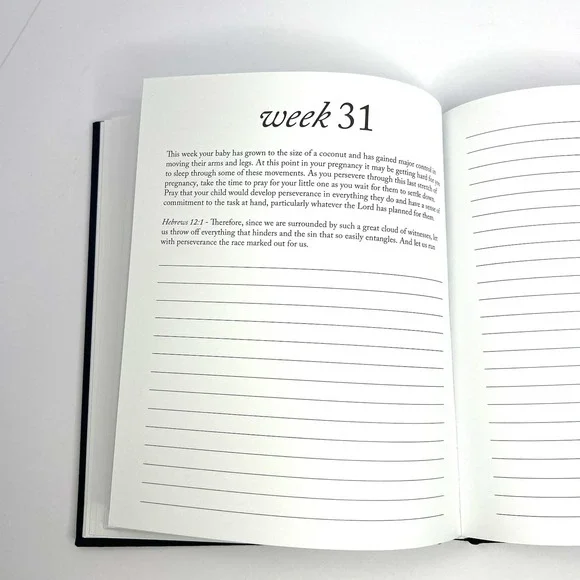 week 31
This week your baby has grown to the size of a coconut and has gained major control in
moving their arms and legs. At this point in your pregnancy it may be getting hard for you
to sleep through some of these movements. As you persevere through this last stretch of
pregnancy, take the time to pray for your little one as you wait for them to settle down.
Pray that your child would develop perseverance in everything they do and have a sense of
commitment to the task at hand, particularly whatever the Lord has planned for them.
Hebrews 12:1 - Therefore, since we are surrounded by such a great cloud of witnesses, let
us throw off everything that hinders and the sin that so easily entangles. And let us run
with perseverance the race marked out for us.